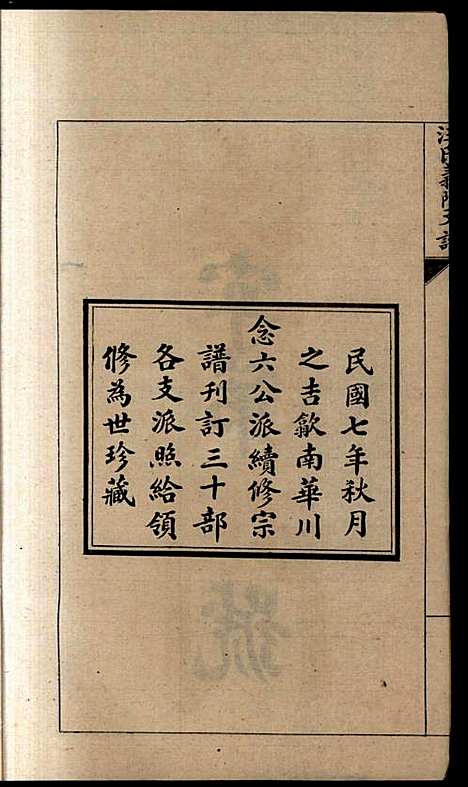 民國七年秋月
之吉歙南華川
念六公派續修宗
譜刊訂三十部
各支派照給領
修為世珍藏
號